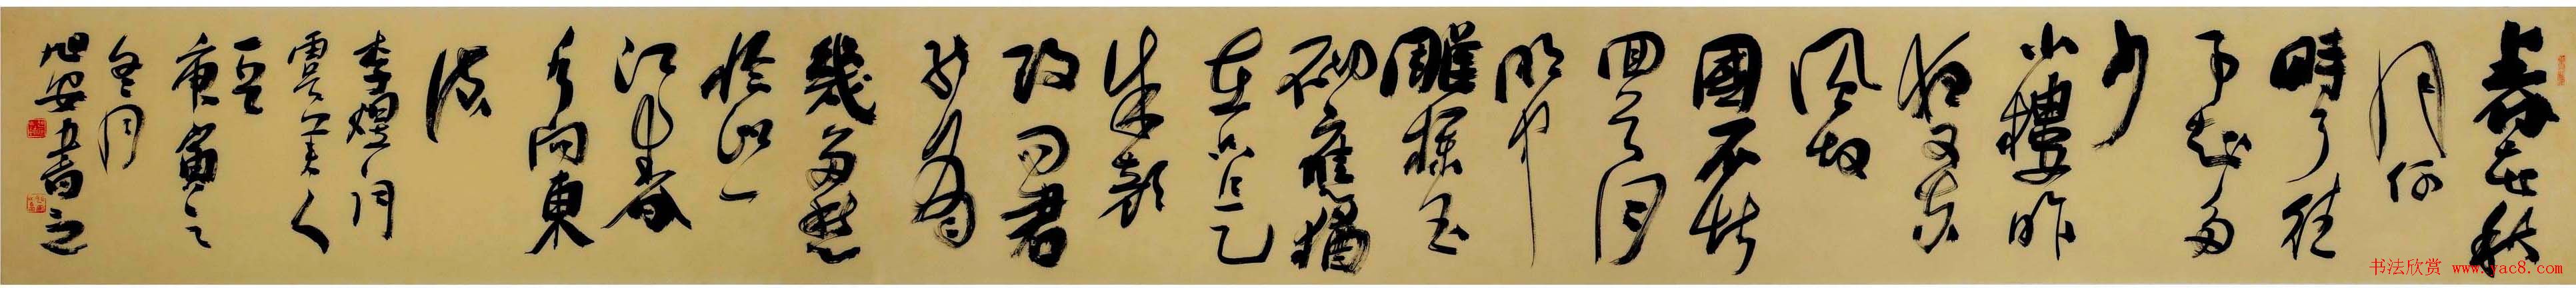 春花秋
月何
時了往
事知多
少
小樓昨
夜又東
風故
國不堪
回首月
明中
雕欄玉
砌應猶
在只是
朱顏
改問君
能有
幾多愁
恰似一
江春水
向東
流
李煜詞
虞美人
一首
庚寅之
冬月
旭安書之
书法欣赏 www.yac8.com